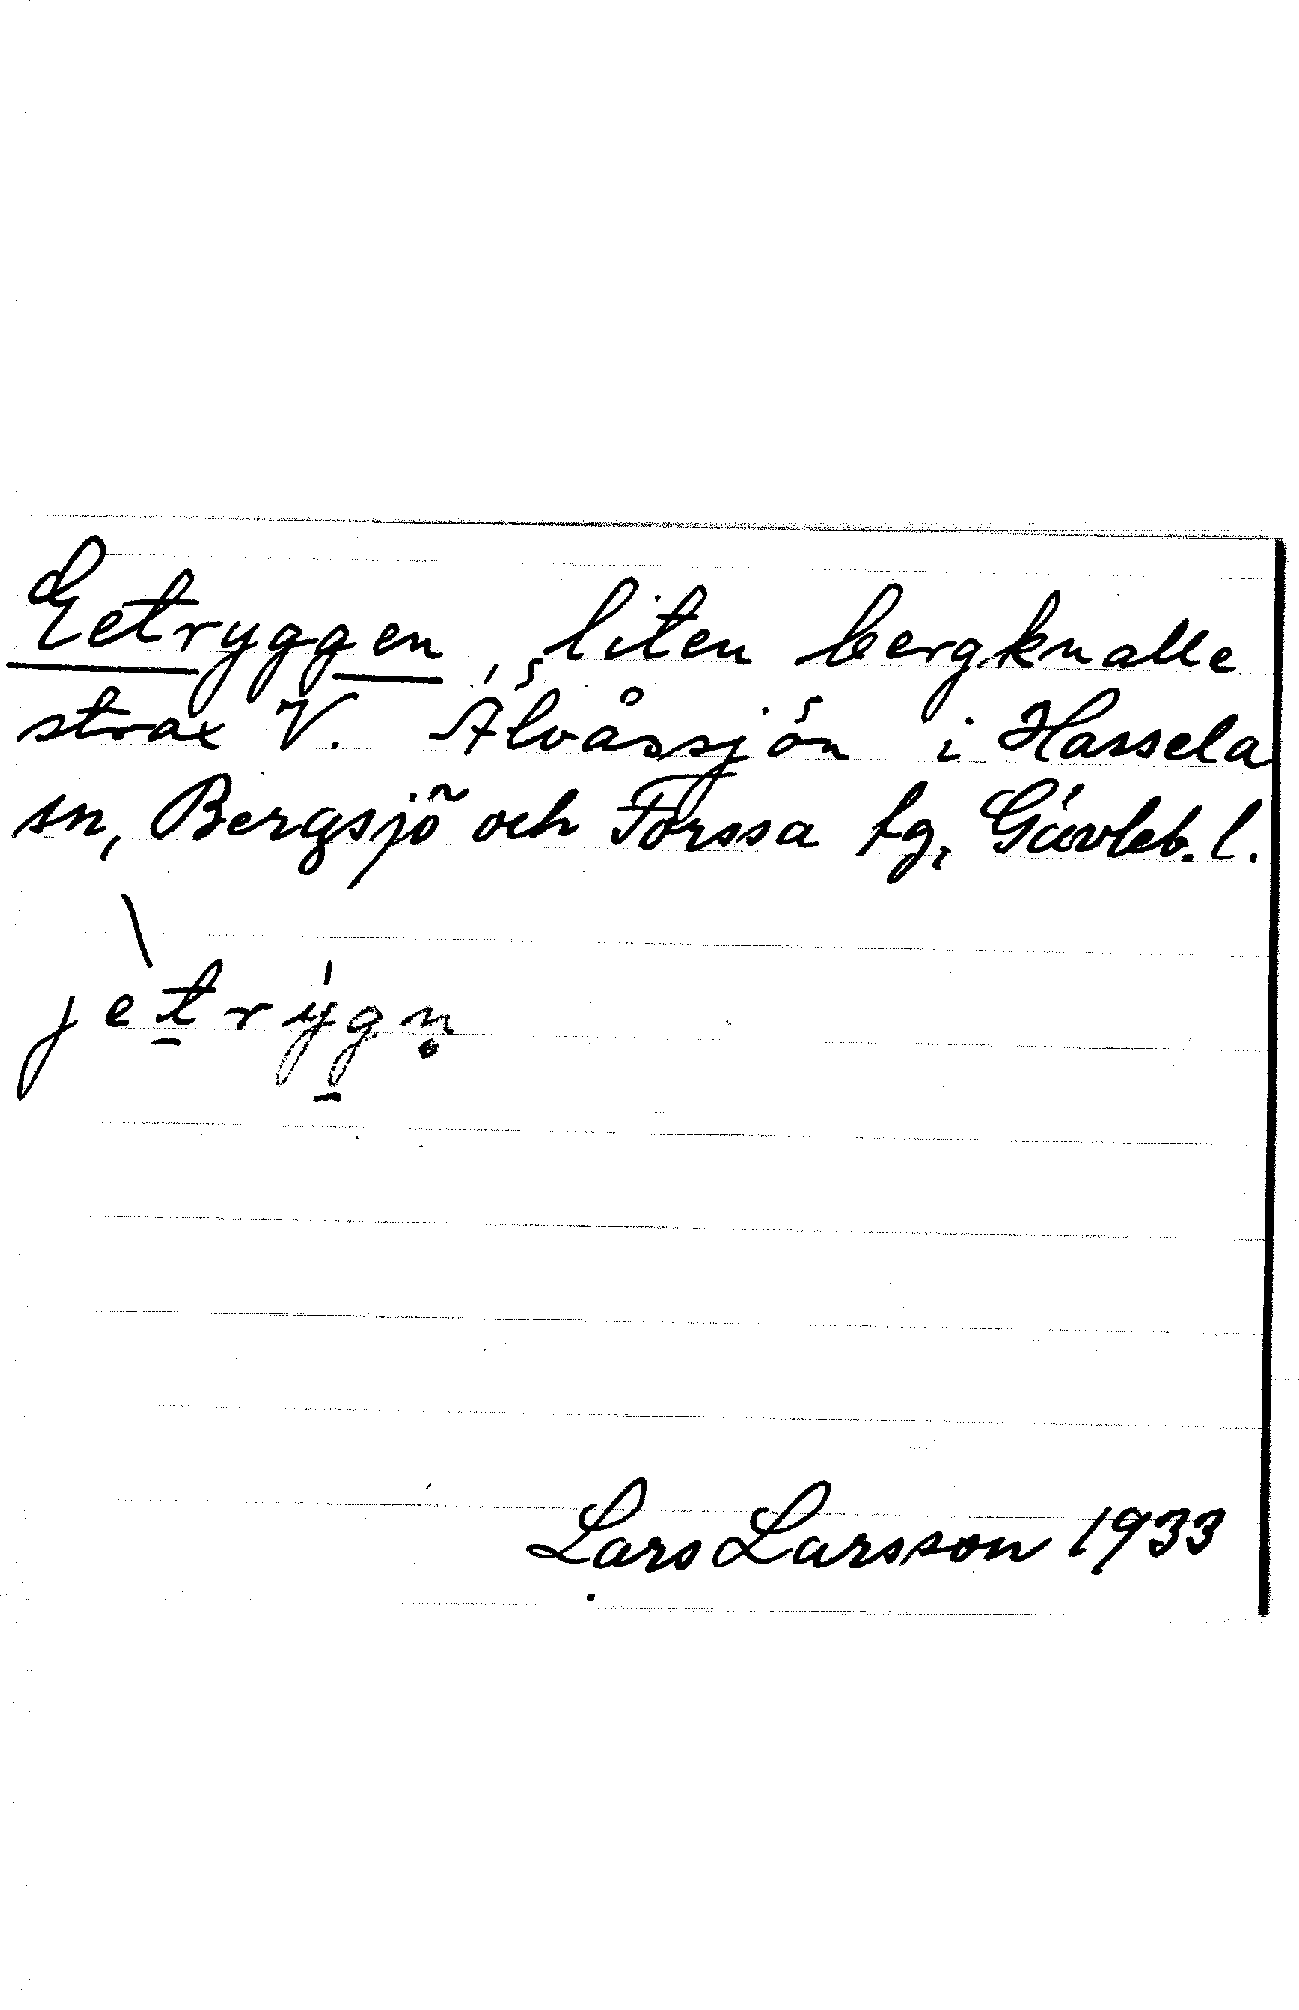 Getryggen, liten bergknalle
strax V. Älvåssjön i Hassela
sn, Bergsjö och Forssa tg, Gävleb. l.
jètrýgn̥
Lars Larsson 1933